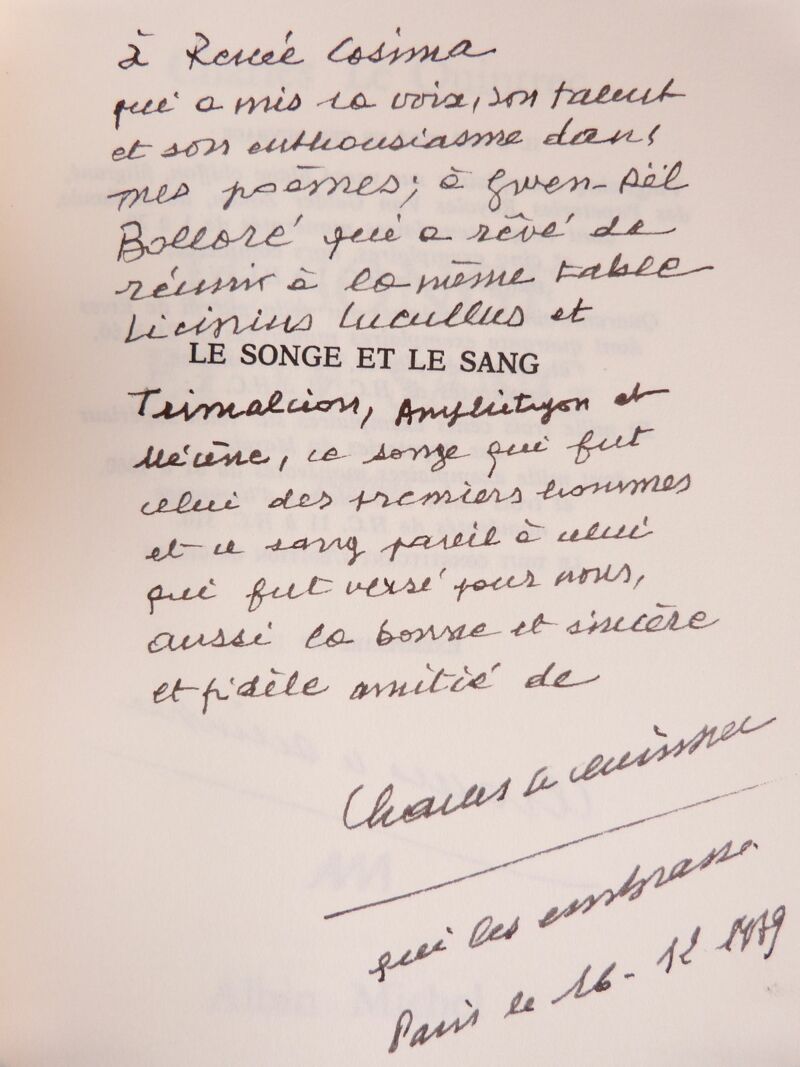 à Renée Cosima
qui a mis sa voix, son talent
et son enthousiasme dans
mes poèmes; à Gwen-Aël
Bolloré qui a rêvé de
réunir à la même table
Licinius Lucullus et
LE SONGE ET LE SANG
Trimalcion, Amphictyon et
Mécène, ce songe qui fut
celui des premiers hommes
et ce sang pareil à celui
qui fut versé pour nous,
aussi la bonne et sincère
et fidèle amitié de
Charles Le Quintrec
qui les embrasse.
Paris le 16-12 1979